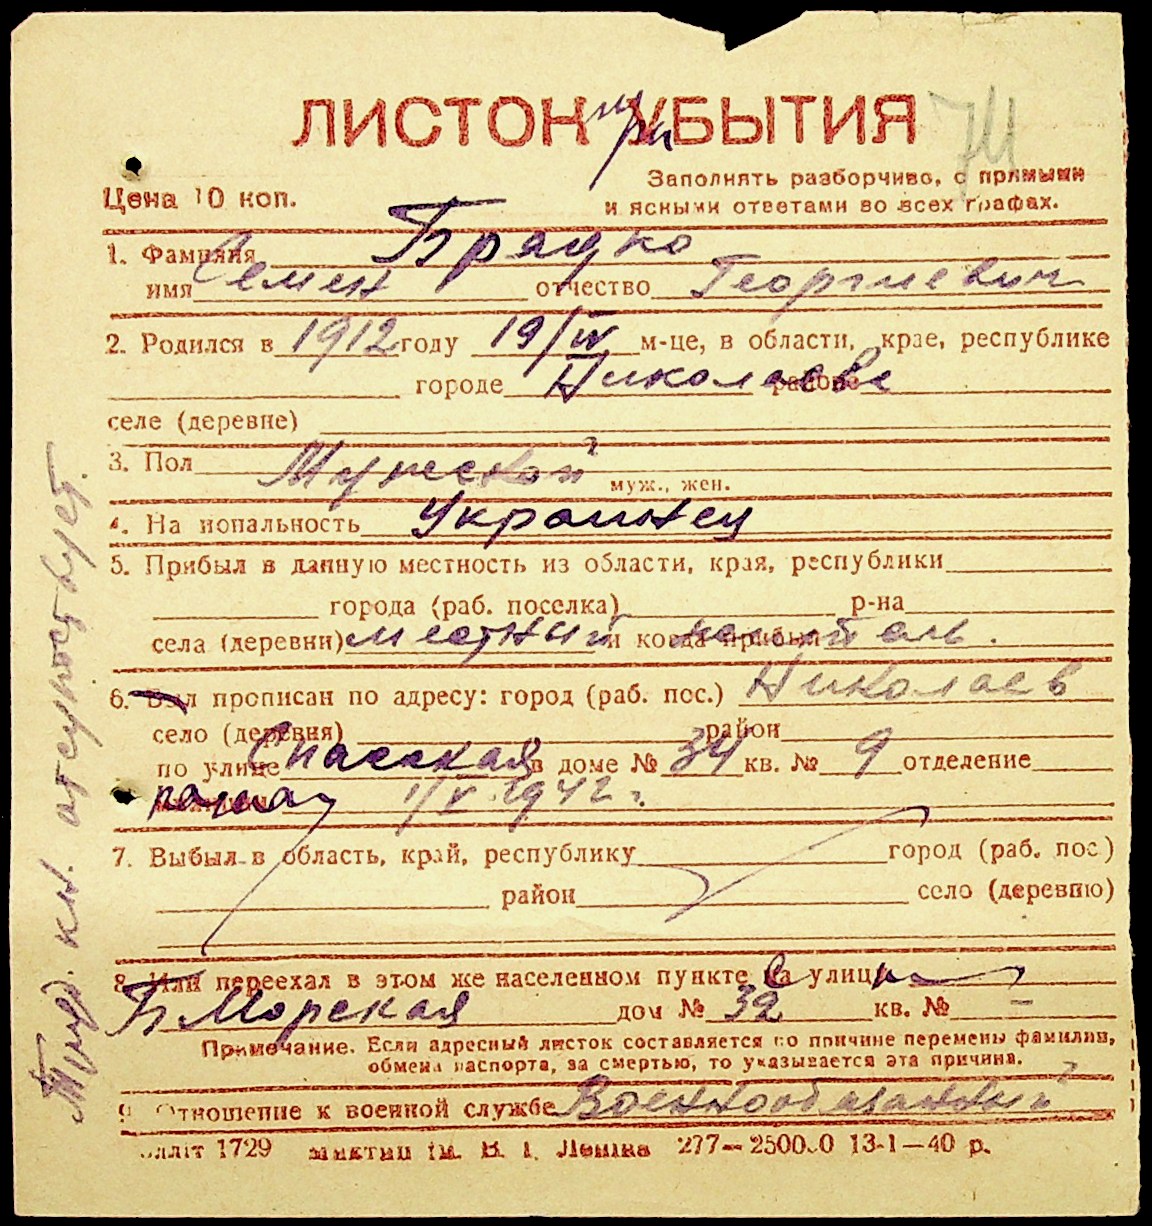 ЛИСТОК УБЫТИЯ
при
Цена 10 коп.
Заполнять разборчиво, с прямыми
и ясными ответами во всех графах.
1. Фамилия Брадко
имя Семен отчество Георгиевич
2. Родился в 1912 году 19/IV м-це, в области, крае, республике
городе Николаеве районе
селе (деревне)
3. Пол Мужской
муж., жен.
4. Национальность Украинец
5. Прибыл в данную местность из области, края, республики
города (раб. поселка) р-на
села (деревни) местный и когда прибыл житель.
6. Был прописан по адресу: город (раб. пос.) Николаев
село (деревня) район
по улице Спасская в доме № 34 кв. № 9 отделение
1/V 1942 г.
7. Выбыл в область, край, республику город (раб. пос.)
район село (деревню)
8. Или переехал в этом же населенном пункте на улицу
Б Морская дом № 32 кв. № –
Примечание. Если адресный листок составляется по причине перемены фамилии,
обмена паспорта, за смертью, то указывается эта причина.
9. Отношение к военной службе Военнообязанный
1729 ім. В. І. Леніна 277—25000 13-1—40 р.
Труд. кн. отсутствует.